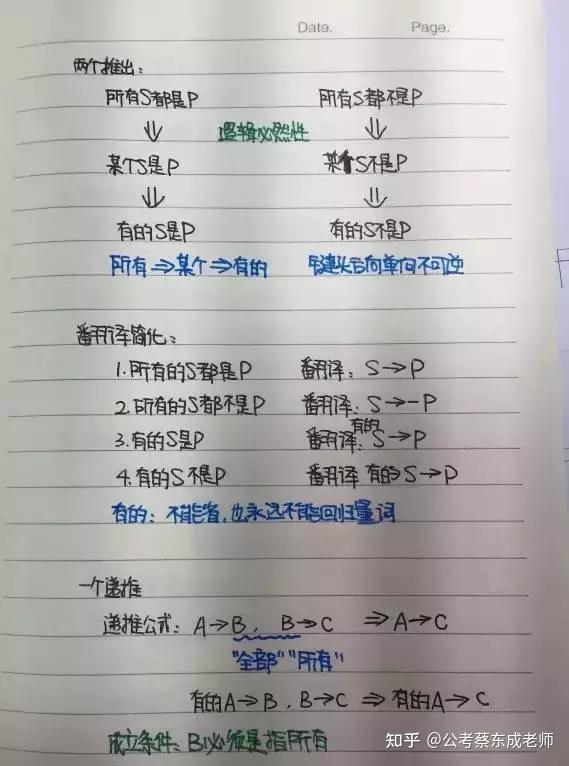 Date. Page.
两个推出：
所有S都是P 所有S都不是P
⇓ 逻辑必然性 ⇓
某个S是P 某个S不是P
⇓ ⇓
有的S是P 有的S不是P
所有⇒某个⇒有的 箭头方向单向不可逆
翻译简化：
1.所有的S都是P 翻译：S→P
2.所有的S都不是P 翻译：S→-P
3.有的S是P 翻译：有的S→P
4.有的S不是P 翻译 有的S→P
有的：不能省，也永远不能回归量词
一个递推
递推公式：A→B，B→C ⇒A→C
"全部""所有"
有的A→B，B→C ⇒有的A→C
成立条件：B必须是指所有
知乎 @公考蔡东成老师